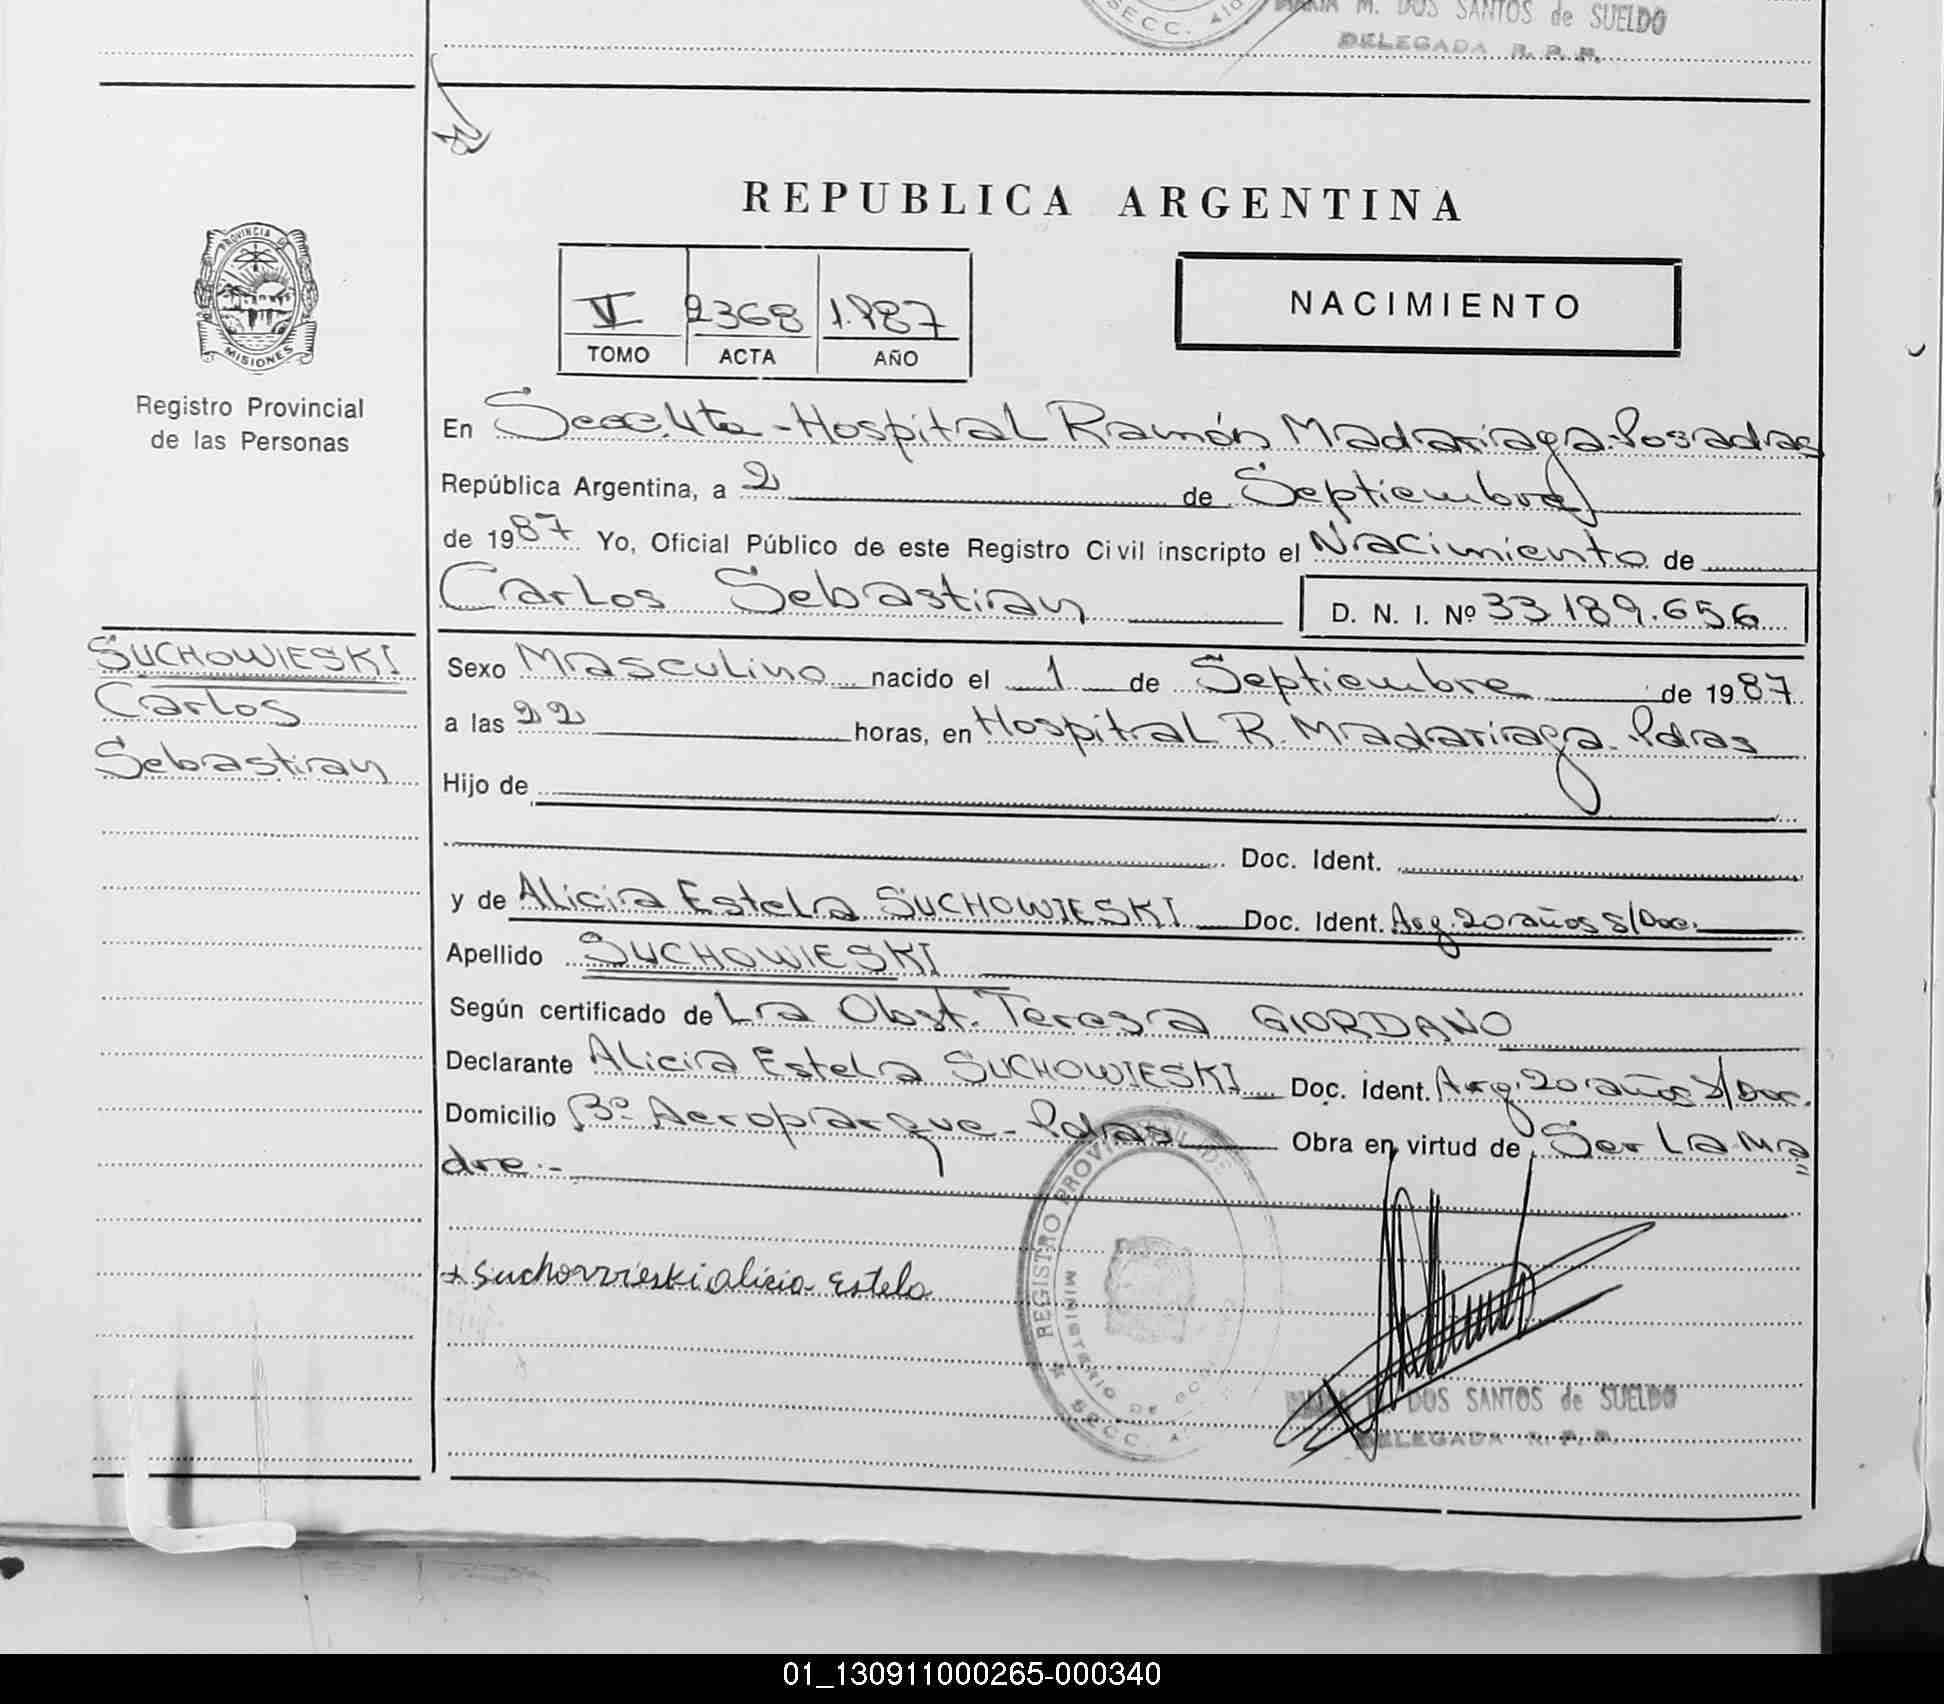 SECC. 4ta
MARIA M. DOS SANTOS de SUELDO
DELEGADA R. P. P.
REPUBLICA ARGENTINA
PROVINCIA DE
MISIONES
Registro Provincial
de las Personas
V 2368 1.987
TOMO ACTA AÑO
NACIMIENTO
En Secc. 4ta - Hospital Ramón Madariaga-Posadas
República Argentina, a 2 de Septiembre
de 1987 Yo, Oficial Público de este Registro Civil inscripto el Nacimiento de
Carlos Sebastian D. N. I. Nº 33 189.656
SUCHOWIESKI
Carlos
Sebastian
Sexo Masculino nacido el 1 de Septiembre de 1987
a las 22 horas, en Hospital R. Madariaga. Pdas
Hijo de
Doc. Ident.
y de Alicia Estela SUCHOWIESKI Doc. Ident. Arg. 20 años S/Doc.
Apellido SUCHOWIESKI
Según certificado de La Obst. Teresa GIORDANO
Declarante Alicia Estela SUCHOWIESKI Doc. Ident. Arg. 20 años S/Doc.
Domicilio Bº Aeroparque - Pdas Obra en virtud de Ser La Ma
dre.-
REGISTRO PROVINCIAL DE
MINISTERIO DE GOBIERNO
SECC.
+ Suchowieski alicia Estela
DOS SANTOS de SUELDO
DELEGADA R. P. P.
01_130911000265-000340